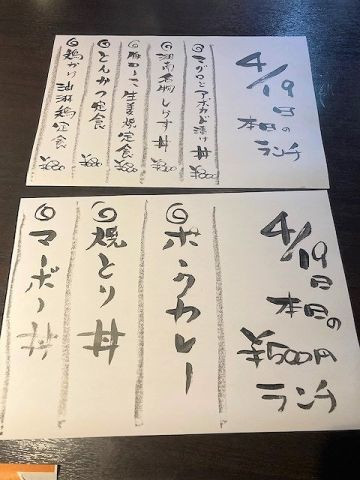 4/19日
本日の
ランチ
マグロとアボカド漬け丼 ¥800
湘南名物しらす丼
豚ロース生姜焼定食
とんかつ定食
鶏かけ油淋鶏定食
4/19日
本日の
¥500円
ランチ
ポークカレー
焼とり丼
マーボー丼